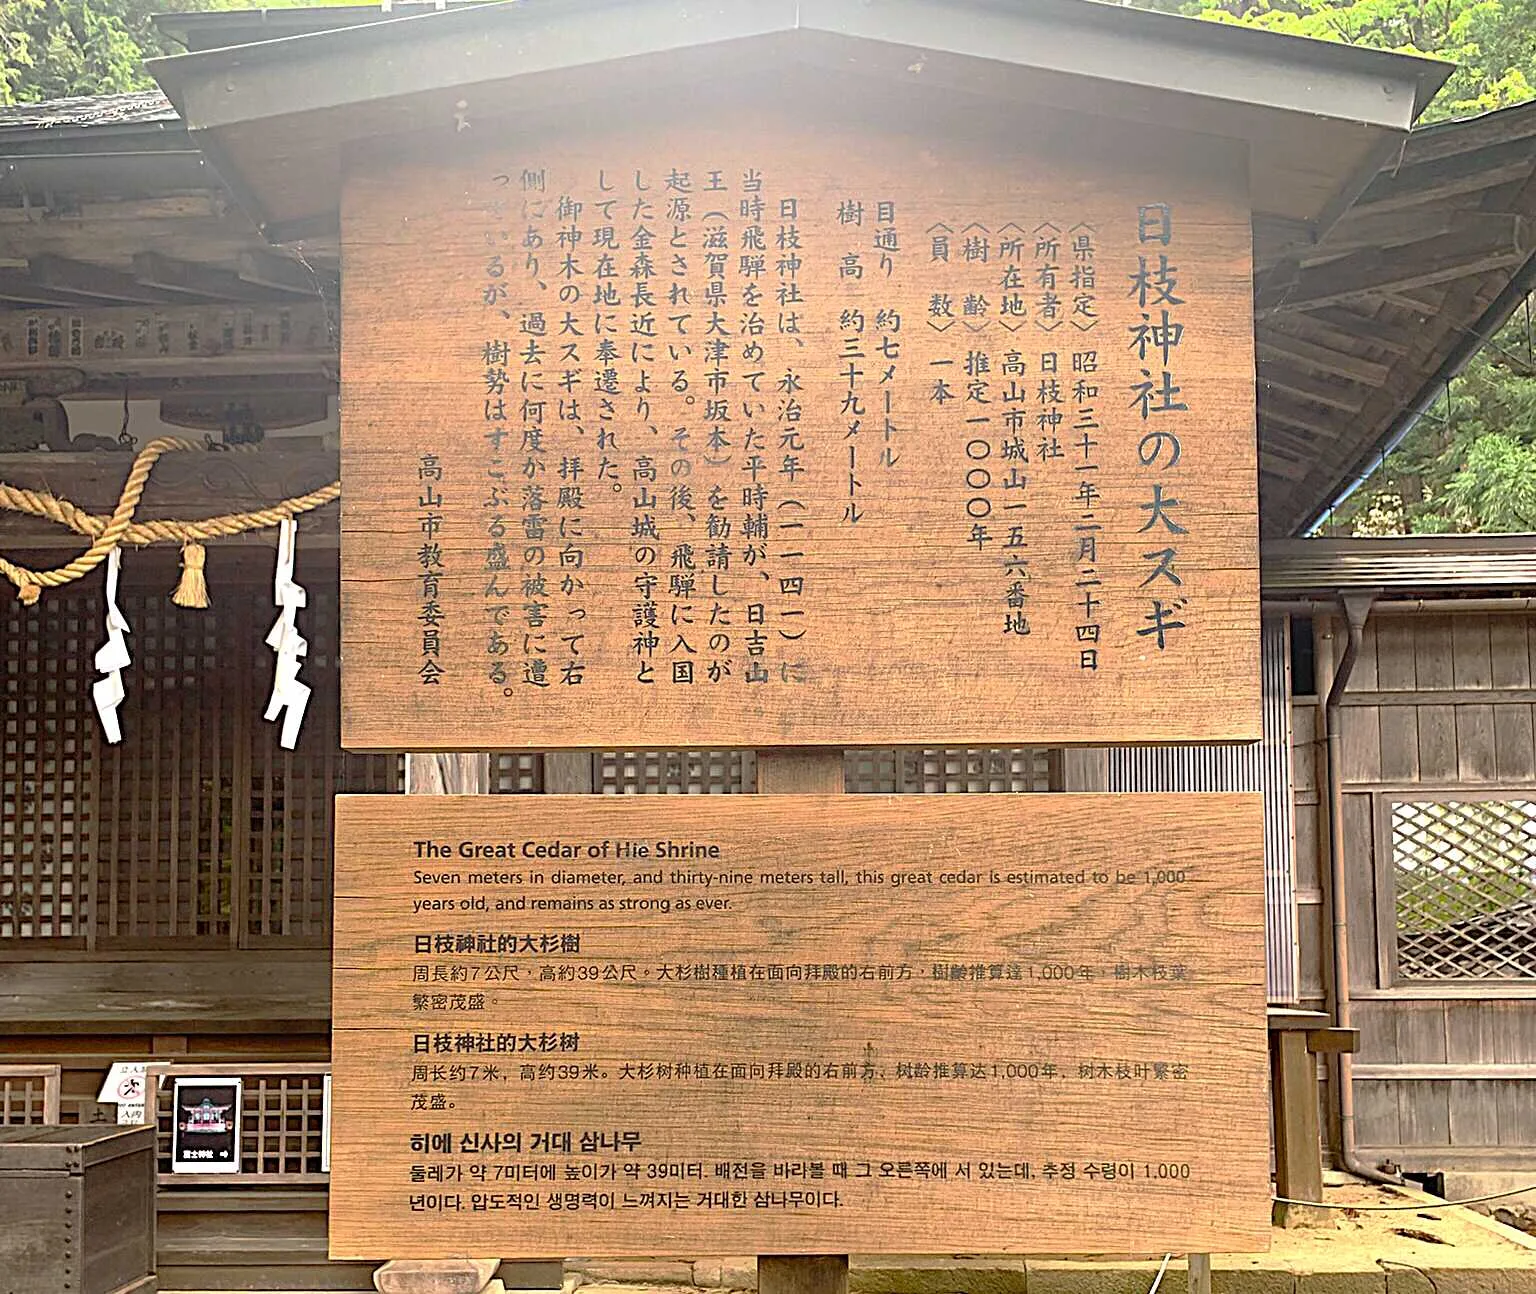 日枝神社の大スギ
〈県指定〉 昭和三十一年二月二十四日
〈所有者〉 日枝神社
〈所在地〉 高山市城山一五六番地
〈樹 齢〉 推定一〇〇〇年
〈員 数〉 一本
目通り 約七メートル
樹 高 約三十九メートル
日枝神社は、永治元年（一一四一）に
当時飛騨を治めていた平時輔が、日吉山
王（滋賀県大津市坂本）を勧請したのが
起源とされている。その後、飛騨に入国
した金森長近により、高山城の守護神と
して現在地に奉遷された。
御神木の大スギは、拝殿に向かって右
側にあり、過去に何度か落雷の被害に遭
っているが、樹勢はすこぶる盛んである。
高山市教育委員会
The Great Cedar of Hie Shrine
Seven meters in diameter, and thirty-nine meters tall, this great cedar is estimated to be 1,000
years old, and remains as strong as ever.
日枝神社的大杉樹
周長約7公尺，高約39公尺。大杉樹種植在面向拜殿的右前方，樹齡推算達1,000年，樹木枝葉
繁密茂盛。
日枝神社的大杉树
周长约7米，高约39米。大杉树种植在面向拜殿的右前方，树龄推算达1,000年，树木枝叶繁密
茂盛。
히에 신사의 거대 삼나무
둘레가 약 7미터에 높이가 약 39미터. 배전을 바라볼 때 그 오른쪽에 서 있는데, 추정 수령이 1,000
년이다. 압도적인 생명력이 느껴지는 거대한 삼나무이다.
富士神社 ➡